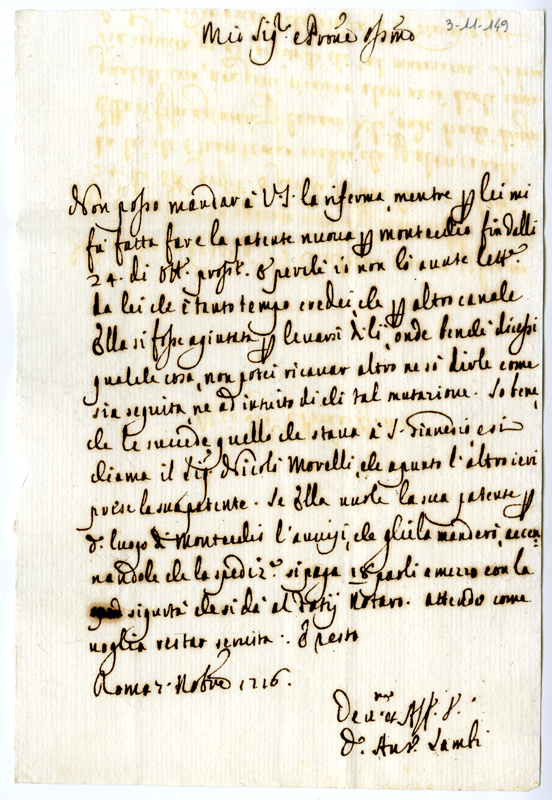 3-11-149
Mio Sig.r e Prone Ossmo
Non posso mandar à V.S. la riferma, mentre p lei mi
fù fatta fare la patente nuova p montecchio fin dalli
24. di Ott. pross. E perche io non hò avute lett.e
da lei che è tanto tempo credei, che p altro canale
Ella si fosse agiutata p levarsi di li, onde benche dicessi
qualche cosa, non potei ricavar altro ne sò dirle come
sia seguita ne ad intuito di chi tal mutazione. So bene,
che le succede quello che stava à S. Gianesio, e si
chiama il Sig. Nicolò Morelli, che apunto l'altro ieri
prese la sua patente. Se Ella vuole la sua patente p
d.o luogo di Montecchio l'avvisi, che gliela manderò, accen
nandole che la spediz.e si paga 18 paoli e mezzo con la
sigurtà che si dà al Notaro. attendo come
voglia restar servita. E resto
Roma 7. Nobre 1716.
D. Ant.